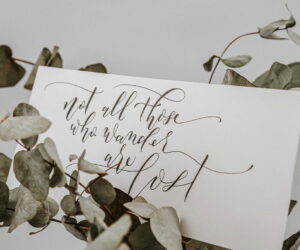 not all those
who wander
are
lost